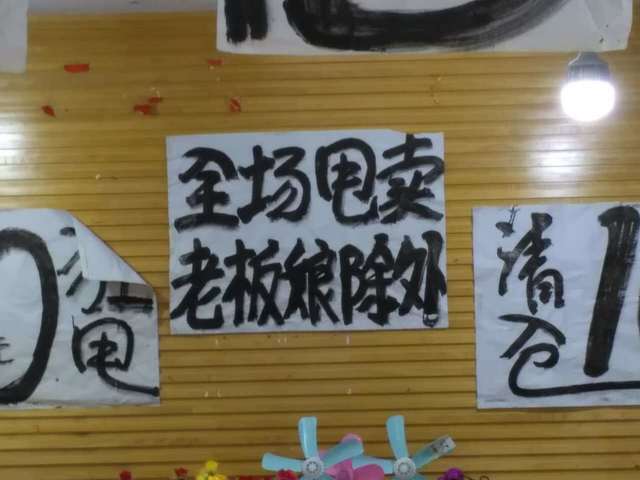 全场甩卖
老板娘除外
元
甩
清仓